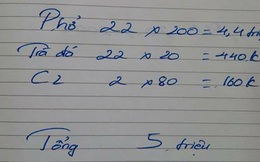 Phở 22 x 200 = 4,4 triệ
Trà đá 22 x 20 = 440k
C2 2 x 80 = 160k
Tổng 5 triệu